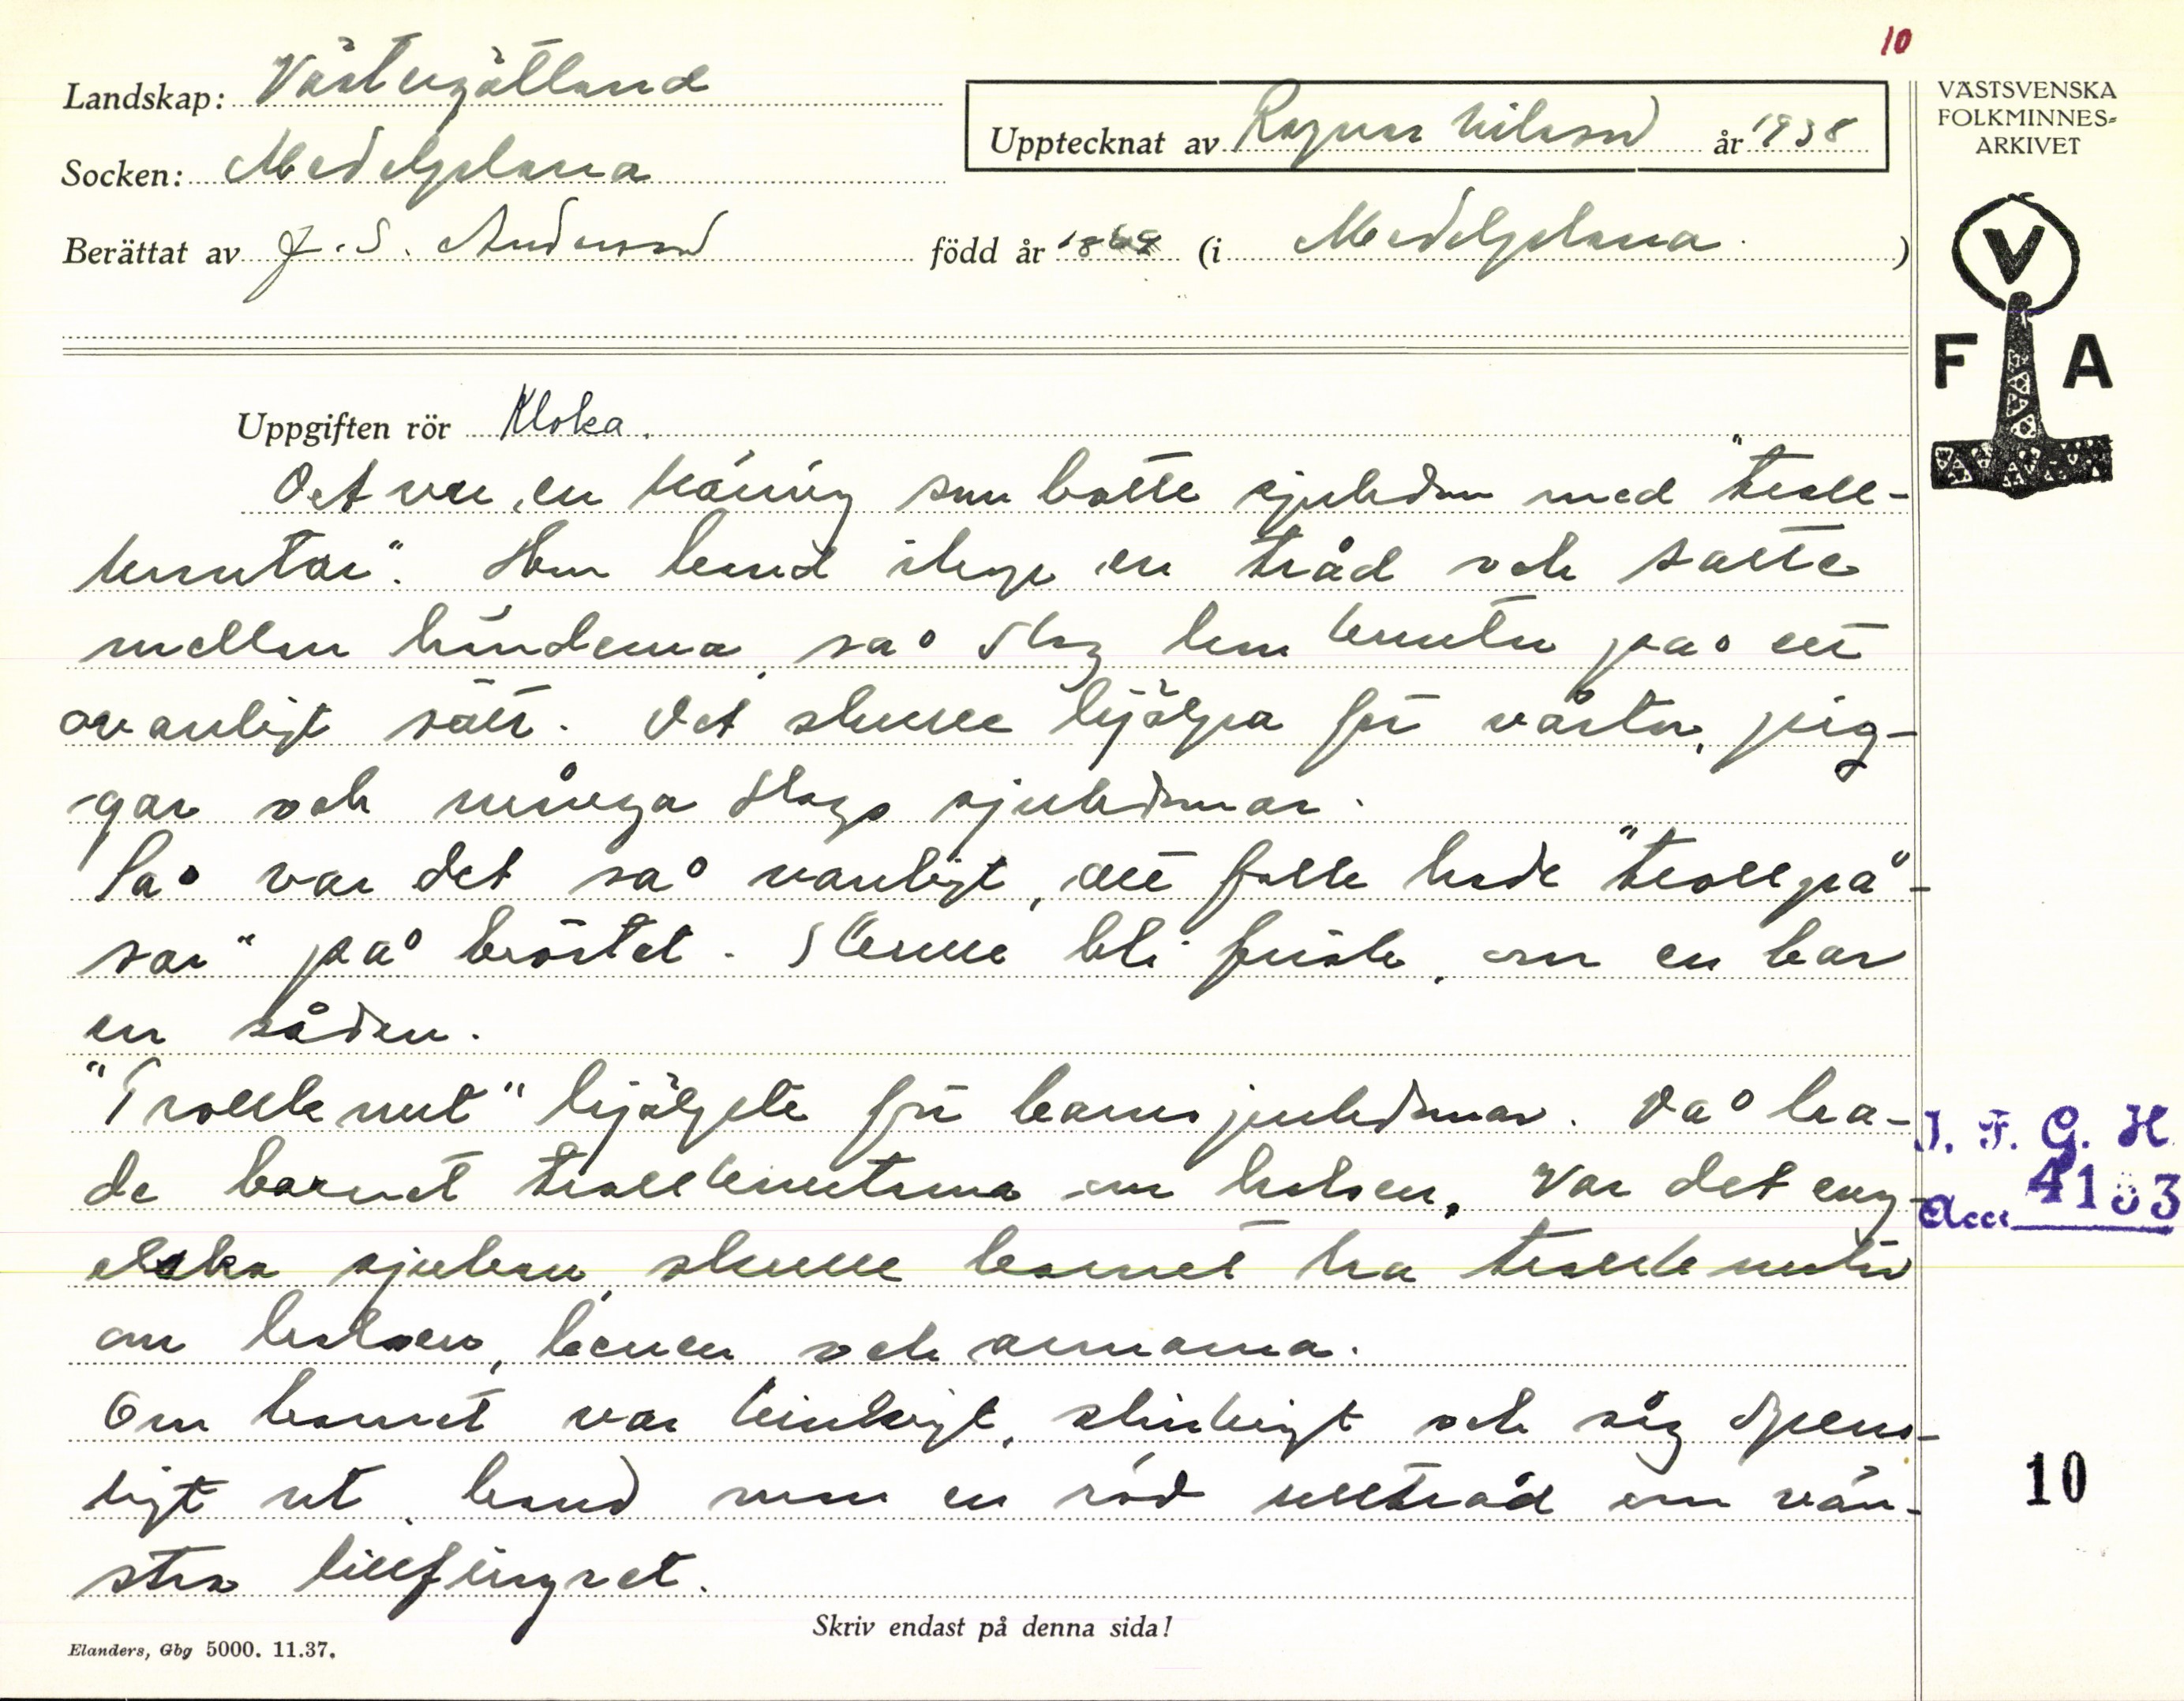 10
Landskap: Västergötland
Socken: Medelplana
Upptecknat av Ragnar Nilsson år 1938
Berättat av J. S. Andersson född år 1868 (i Medelplana.)
VÄSTSVENSKA
FOLKMINNES-
ARKIVET
V
F A
Uppgiften rör Kloka.
Det var en käring som botte sjukdom med "troll-
knutar". Hon band ihop en tråd och satte
mellan händerna, så slog hon knuten på ett
ovanligt sätt. Det skulle hjälpa för vårtor, pig-
gar och många slags sjukdomar.
Så var det så vanligt, att folk hade "trollpå-
sar" på bröstet. Skulle bli frisk, om en bar
en sådan.
"Trollknut" hjälpte för barnsjukdomar. Då ha-
de barnet trollknutarna om halsen. Var det eng-
elska sjukan, skulle barnet ha trollknutar
om halsen, benen och armarna.
Om barnet var kinkigt, skrikigt och såg spens-
ligt ut, band man en röd ulltråd om vän-
stra lillfingret.
I. F. G. H.
Acc. 4183
10
Skriv endast på denna sida!
Elanders, Gbg 5000. 11.37.